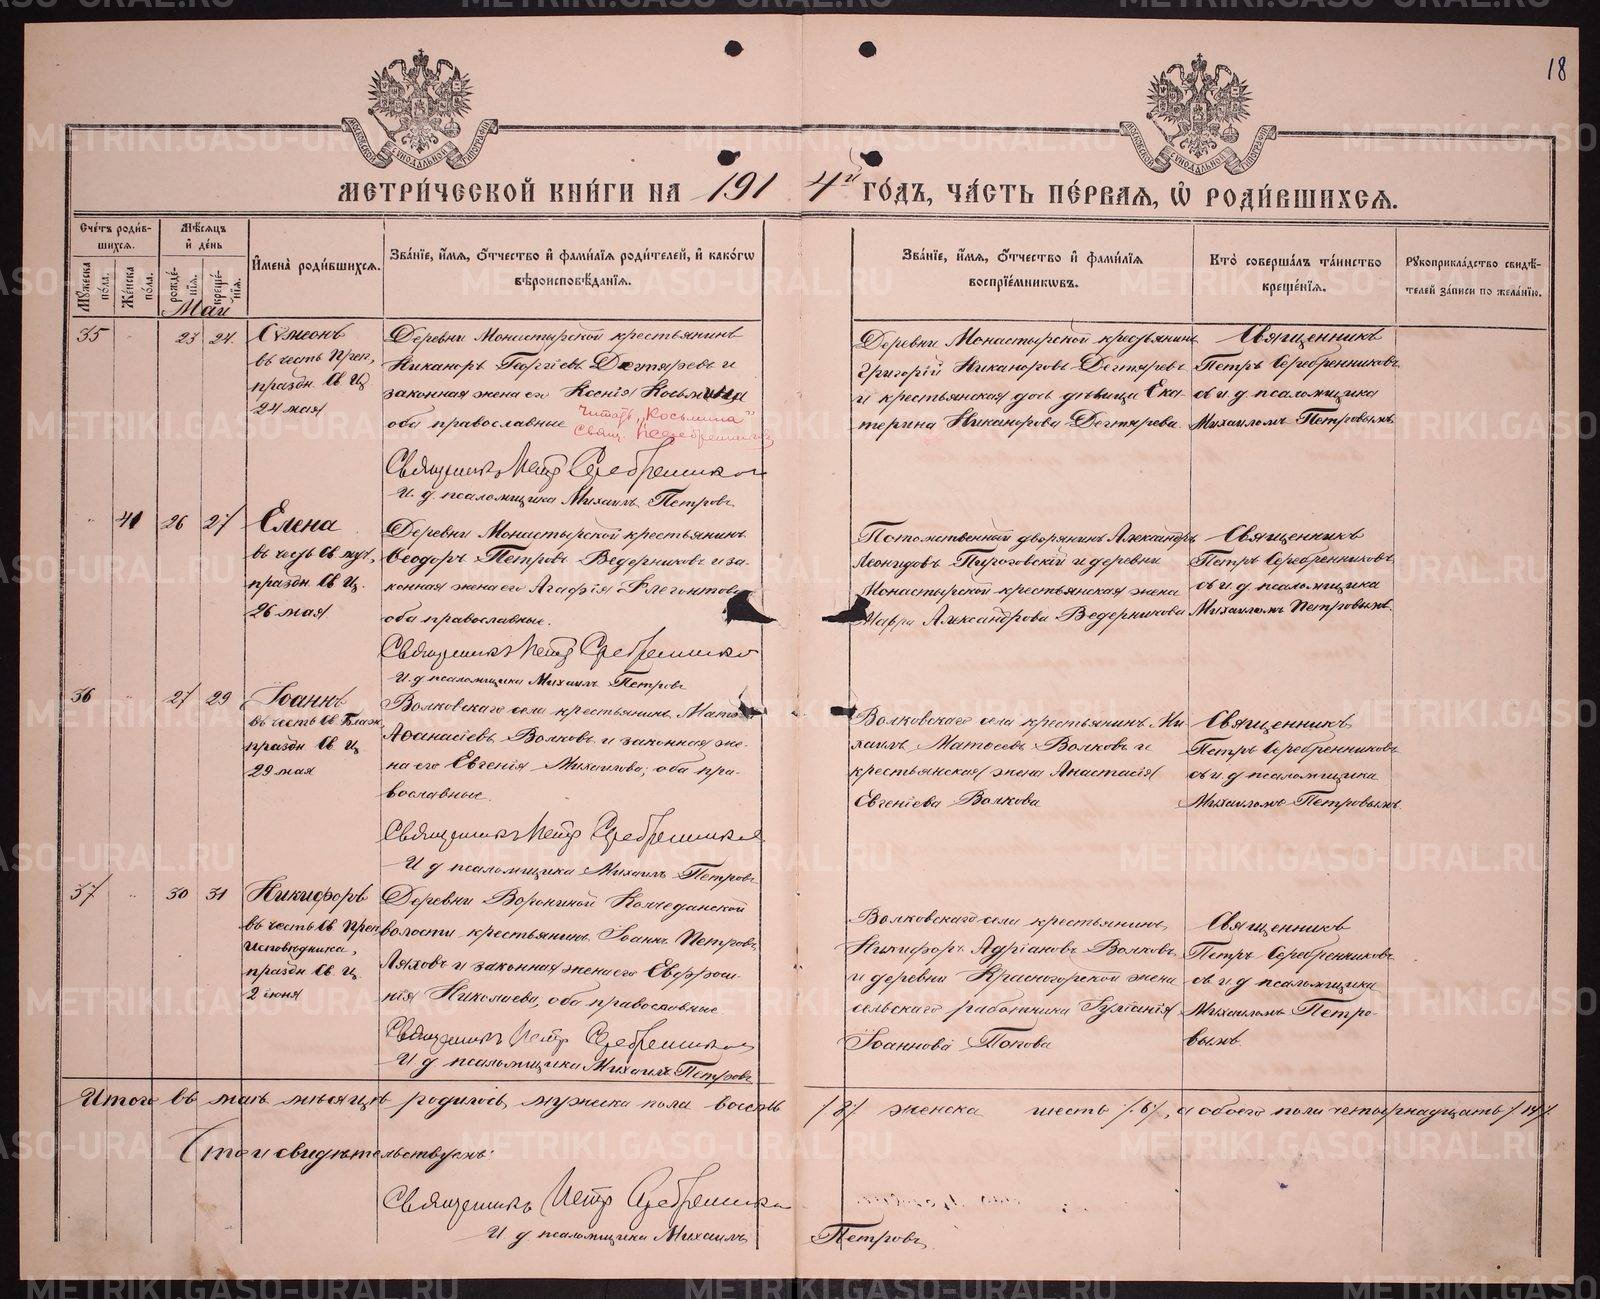 18
МЕТРИ́ЧЕСКОЙ КНИ́ГИ НА 1914й ГО́ДЪ, ЧА́СТЬ ПЕ́РВАЯ, Ѽ РОДИ́ВШИХСѦ.
Сче́тъ роди́в-
шихсѧ.
Мꙋжеска по́ла.
Же́нска по́ла.
Мѣ́сѧцъ
и҆ де́нь
рожде́-
нїѧ.
креще́-
нїѧ.
И҆мена̀ роди́вшихсѧ.
Зва́нїе, и҆́мѧ, ѻ҆́тчество и҆ фами́лїѧ роди́телей, и҆ како́гѡ
вѣроисповѣ́данїѧ.
Зва́нїе, и҆́мѧ, ѻ҆́тчество и҆ фами́лїѧ
воспрїе́мниковъ.
Кто̀ соверша́лъ та́инство
креще́нїѧ.
Рꙋкоприкла́дство свидѣ́-
телей за́писи по жела́нїю.
Май
35
23 24
Сѵмеонъ
въ честь Преп.,
праздн. Св. Ц.
24 мая
Деревни Монастырской крестьянинъ
Никаноръ Георгіевъ Дегтяревъ и
законная жена его Ксенія Косьмина
оба православные
читать „Косьмина“
Свящ. П. Серебренниковъ
Священникъ Петръ Серебренников
И. д. псаломщика Михаилъ Петровъ
Деревни Монастырской крестьянинъ
Григорій Никаноровъ Дегтяревъ
и крестьянская дочь дѣвица Ека-
терина Никанорова Дегтярева.
Священникъ
Петръ Серебренниковъ
съ и. д. псаломщика
Михаиломъ Петровымъ
41
26 27
Елена
въ честь Св. муч.,
праздн. Св. Ц.
26 мая
Деревни Монастырской крестьянинъ
Ѳеодоръ Петровъ Ведерниковъ и за-
конная жена его Агафія Флегонтова
оба православные.
Священникъ Петръ Серебреннико
И. д. псаломщика Михаилъ Петровъ
Потомственный дворянинъ Александръ
Леонидовъ Пироговскій и деревни
Монастырской крестьянская жена
Мавра Александрова Ведерникова
Священникъ
Петръ Серебренниковъ
съ и. д. псаломщика
Михаиломъ Петровымъ.
36
27 29
Іоаннъ
въ честь Св. Блаж.
праздн. Св. Ц.
29 мая
Волковскаго села крестьянинъ
Аѳанасіевъ Волковъ и законная же-
на его Евгенія Михаилова; оба пра-
вославные.
Священникъ Петръ Серебренников
И д псаломщика Михаилъ Петровъ
Волковскаго села крестьянинъ Ми-
хаилъ Матѳеевъ Волковъ и
крестьянская жена Анастасія
Евгеніева Волкова
Священникъ
Петръ Серебренниковъ
съ и. д псаломщика
Михаиломъ Петровымъ.
37
30 31
Никифоръ
въ честь Св. Преп.
Исповѣдника,
праздн. Св. Ц.
2 іюня
Деревни Ворониной Колчеданской
волости крестьянинъ Іоаннъ Петровъ
Ляховъ и законная жена его Евфроси-
нія Николаева, оба православные
Священникъ Петръ Серебренников
И. д псаломщика Михаилъ Петровъ
Волковскаго села крестьянинъ
Никифоръ Адріановъ Волковъ
и деревни Красногорской жена
сельскаго работника Іуліанія
Іоаннова Попова
Священникъ
Петръ Серебренниковъ
съ и. д псаломщика
Михаиломъ Петро-
вымъ.
Итого въ маѣ мѣсяцѣ родилось мужеска пола восемь /8/ женска шесть /6/, а обоего пола четырнадцать /14/.
Сто и свидѣтельствуемъ:
Священникъ Петръ Серебренников
И д псаломщика Михаилъ Петровъ.
METRIKI.GASO-URAL.RU